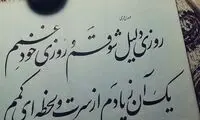 روزی دلیل شوقم و روزی خود غمم
یک آن زیادم از سرت و لحظه ای کمم